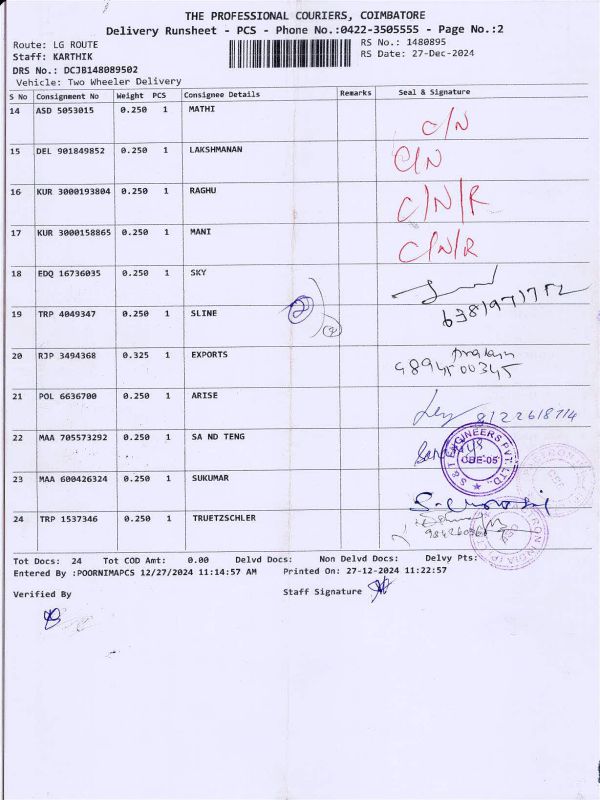 THE PROFESSIONAL COURIERS, COIMBATORE
Delivery Runsheet - PCS - Phone No.:0422-3505555 - Page No.:2
Route: LG ROUTE RS No.: 1480895
Staff: KARTHIK RS Date: 27-Dec-2024
DRS No.: DCJB148089502
Vehicle: Two Wheeler Delivery
S No Consignment No Weight PCS Consignee Details Remarks Seal & Signature
14 ASD 5053015 0.250 1 MATHI C/N
15 DEL 901849852 0.250 1 LAKSHMANAN C/N
16 KUR 3000193804 0.250 1 RAGHU C/N/R
17 KUR 3000158865 0.250 1 MANI C/N/R
18 EDQ 16736035 0.250 1 SKY
6381971752
19 TRP 4049347 0.250 1 SLINE
20 RJP 3494368 0.325 1 EXPORTS
9894500345
21 POL 6636700 0.250 1 ARISE
22 MAA 705573292 0.250 1 SA ND TENG
S & T ENGINEERS PVT. LTD.
CBE-05
23 MAA 600426324 0.250 1 SUKUMAR
24 TRP 1537346 0.250 1 TRUETZSCHLER
Tot Docs: 24 Tot COD Amt: 0.00 Delvd Docs: Non Delvd Docs: Delvy Pts:
Entered By :POORNIMAPCS 12/27/2024 11:14:57 AM Printed On: 27-12-2024 11:22:57
Verified By Staff Signature